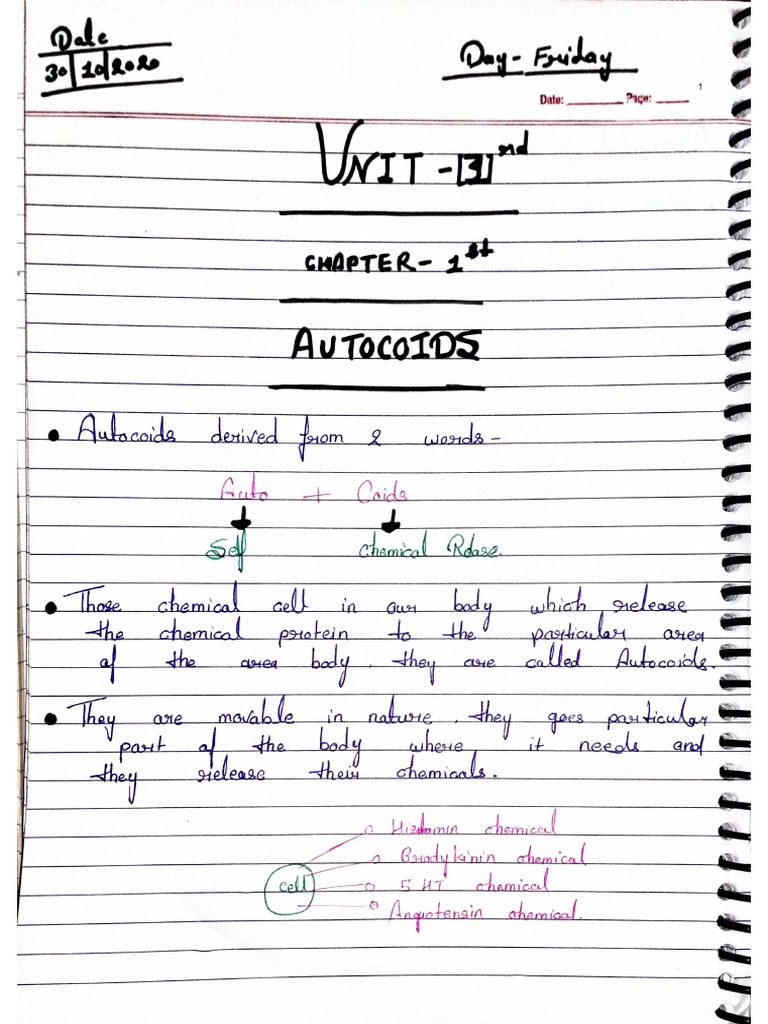 Date
30/10/2020
Day - Friday
Date: ________ Page: _____
1
UNIT - [3]nd
CHAPTER - 1st
AUTOCOIDS
• Autocoids derived from 2 words -
Auto + Coids
Self Chemical Relase.
• Those chemical cell in our body which release
the chemical protein to the particular area
of the area body. they are called Autocoids.
• They are movable in nature. they goes particular
part of the body where it needs and
they release their chemicals.
Histamin chemical
Bradykinin chemical
cell 5 HT chemical
Angiotensin chemical.